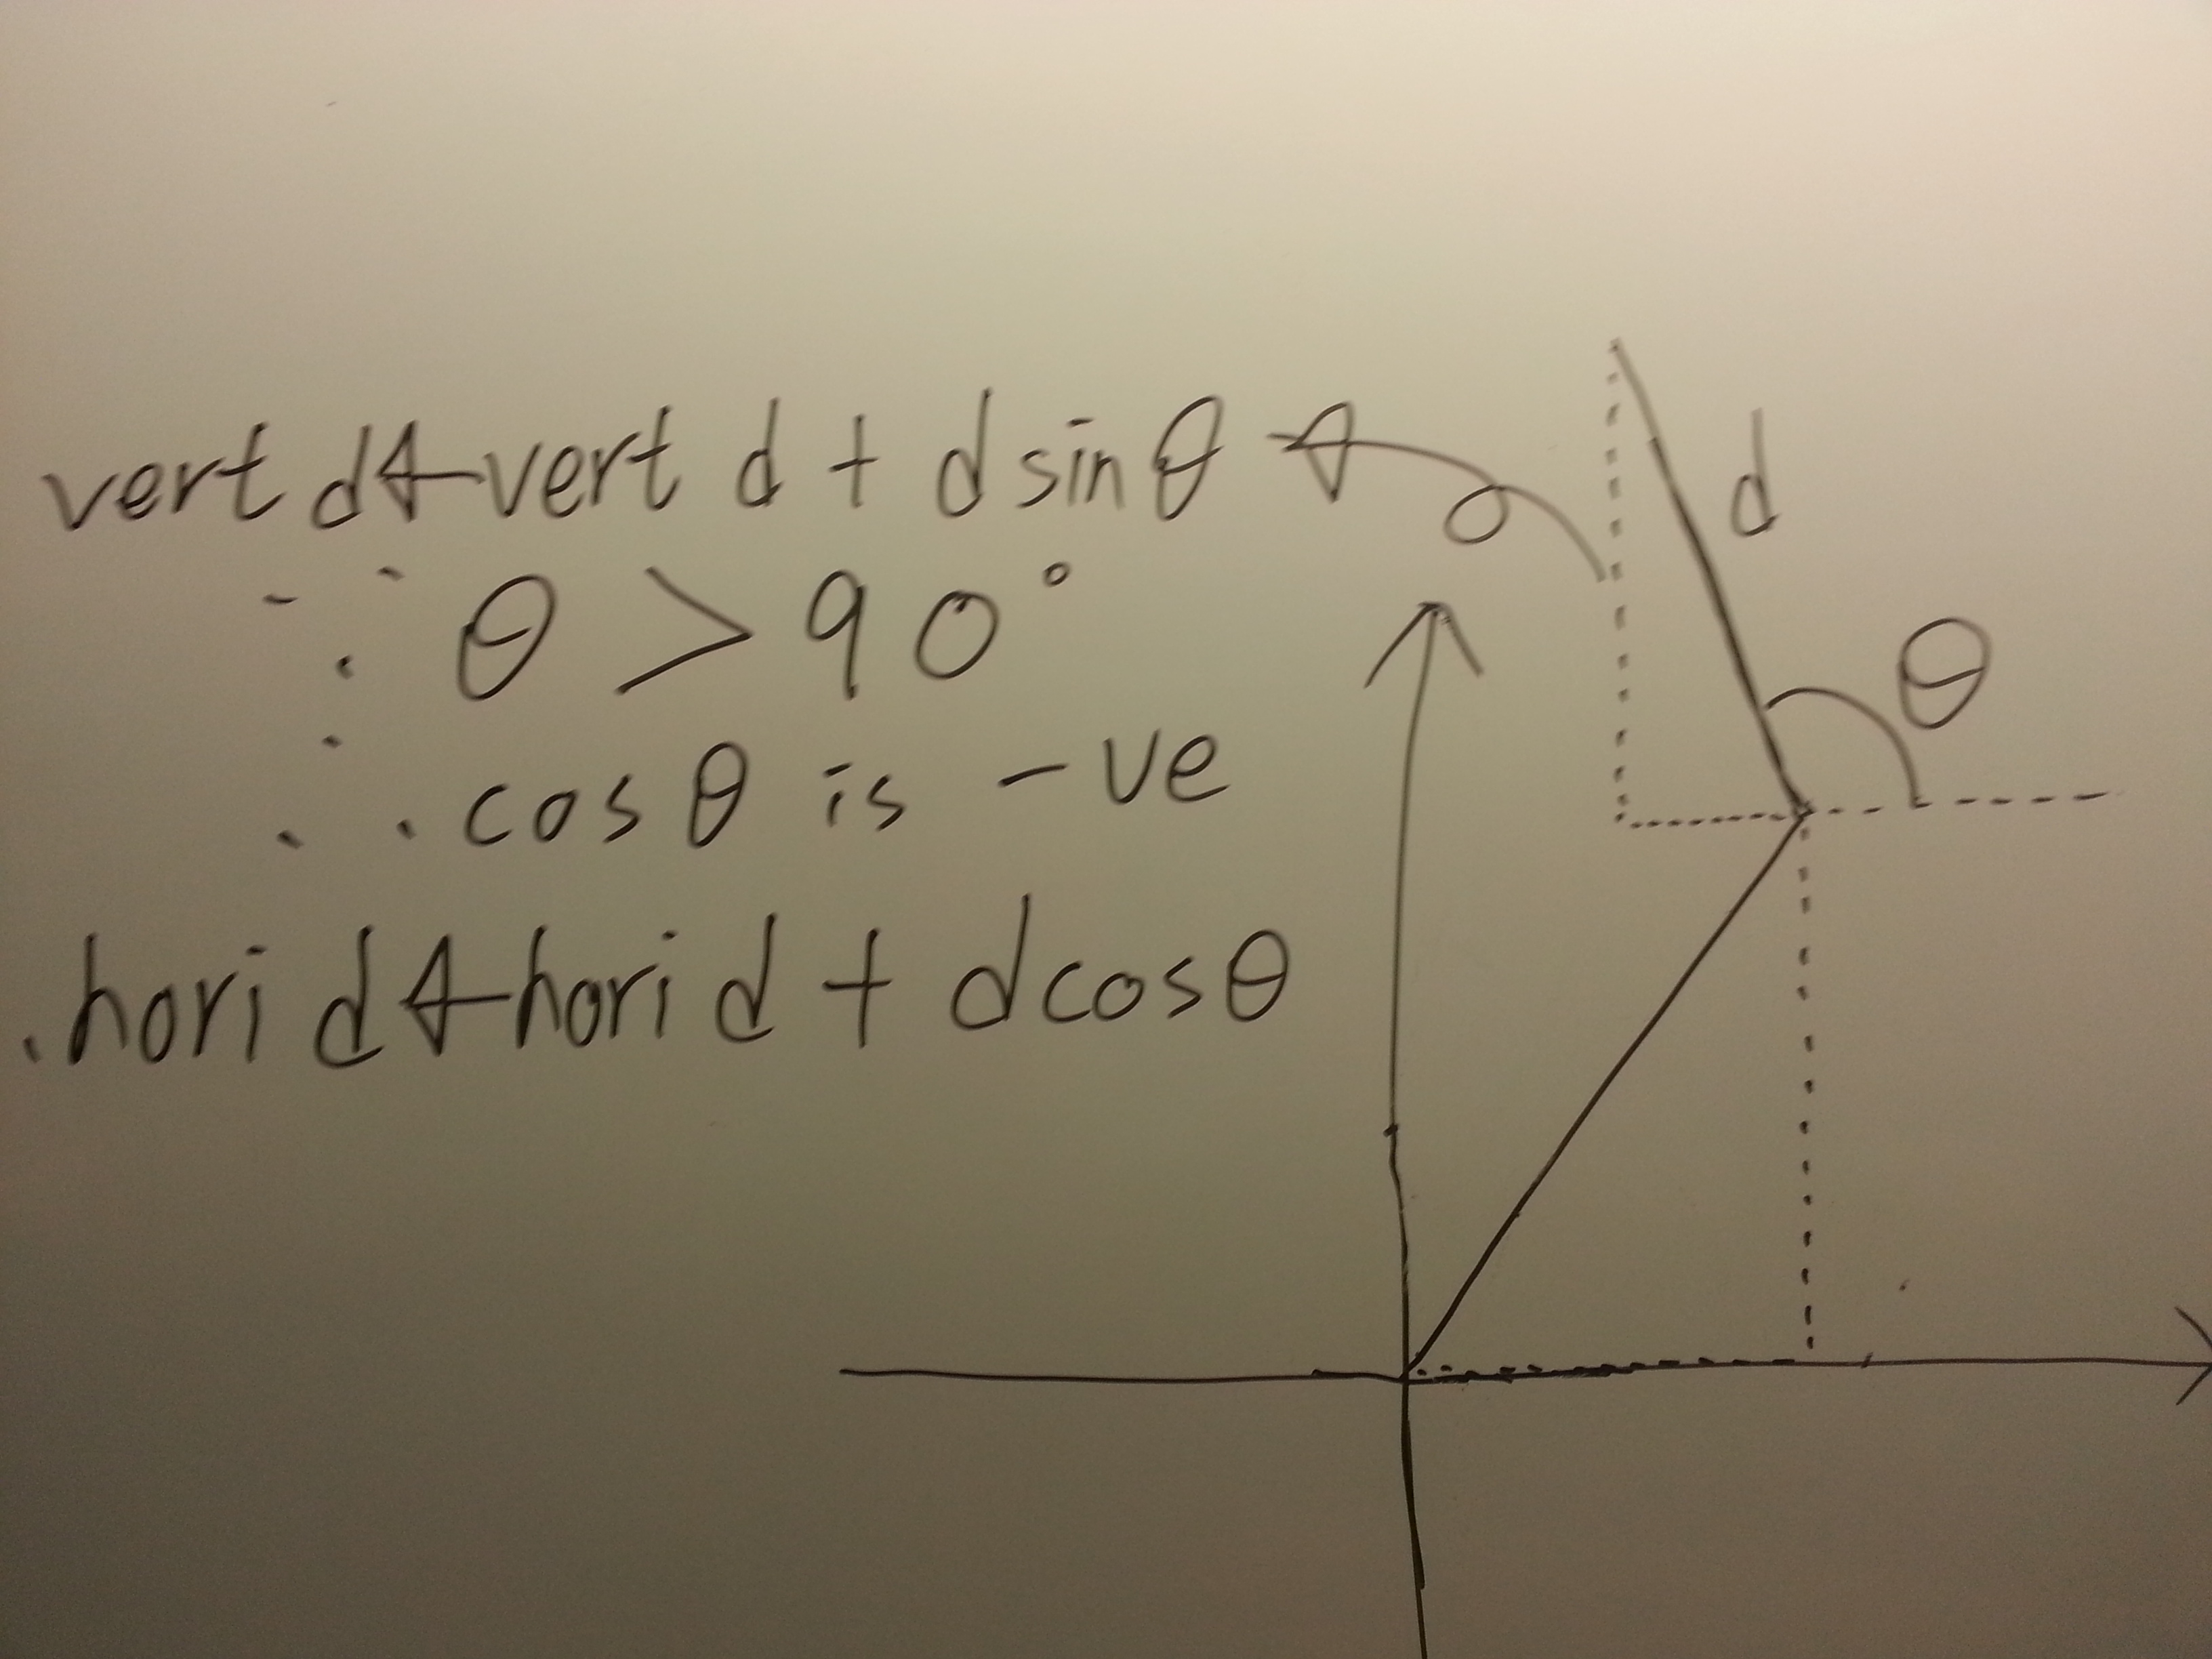 vert d ← vert d + d sin θ
∵ θ > 90°
∴ cos θ is -ve
.hori d ← hori d + d cos θ
d
θ